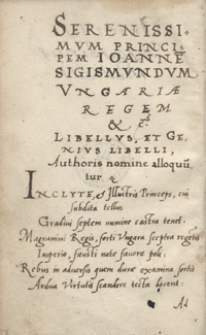 SERENISSI-
MVM PRINCI-
PEM IOANNE
SIGISMVNDVM
VNGARIÆ
REGEM
& c̃.
LIBELLVS, ET GE-
NIVS LIBELLI,
Authoris nomine alloquũ
tur
INCLYTE, & Illustris Princeps, cui
subdita tellus
Gradiui septem numine castra tenet.
Magnanimi Regis, forti Vngara sceptra
Imperio, fausti note fauore poli.
Rebus in aduersis quem dura examina sortis
Ardua Virtutis scandere tecta docent:
At